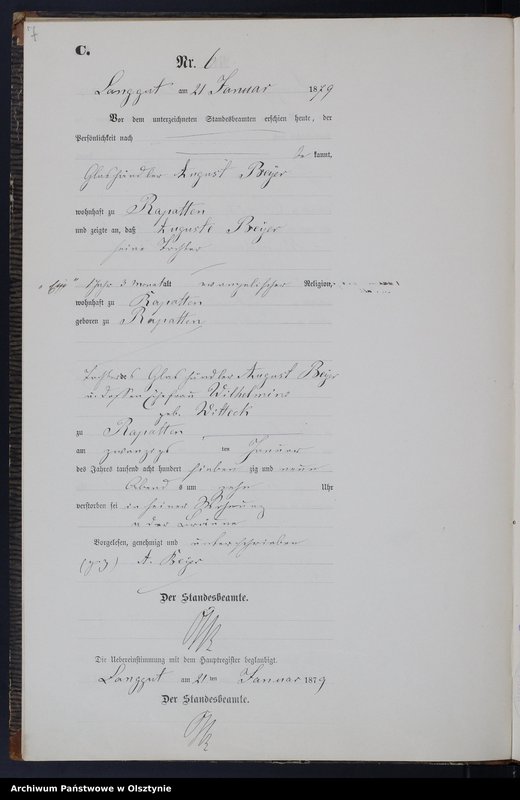 7
C.
Nr. 6
Langgut am 21 Januar 1879
Vor dem unterzeichneten Standesbeamten erschien heute, der
Persönlichkeit nach
be kannt,
Glashändler August Beyer
wohnhaft zu Rapatten
und zeigte an, daß Auguste Beyer
seine Tochter
1 Jahr 3 Monat alt evangelischer Religion,
wohnhaft zu Rapatten
geboren zu Rapatten
Tochter des Glashändler August Beyer
u. dessen Ehefrau Wilhelmine
geb. Wittech
zu Rapatten
am zwanzigs ten Januar
des Jahres tausend acht hundert sieben zig und neun
Abend s um zehn Uhr
verstorben sei in seiner Wohnung
a der Bräune
Vorgelesen, genehmigt und unterschrieben
(gez) A. Beyer
Der Standesbeamte.
Die Uebereinstimmung mit dem Hauptregister beglaubigt.
Langgut am 21 ten Januar 1879
Der Standesbeamte.
Archiwum Państwowe w Olsztynie